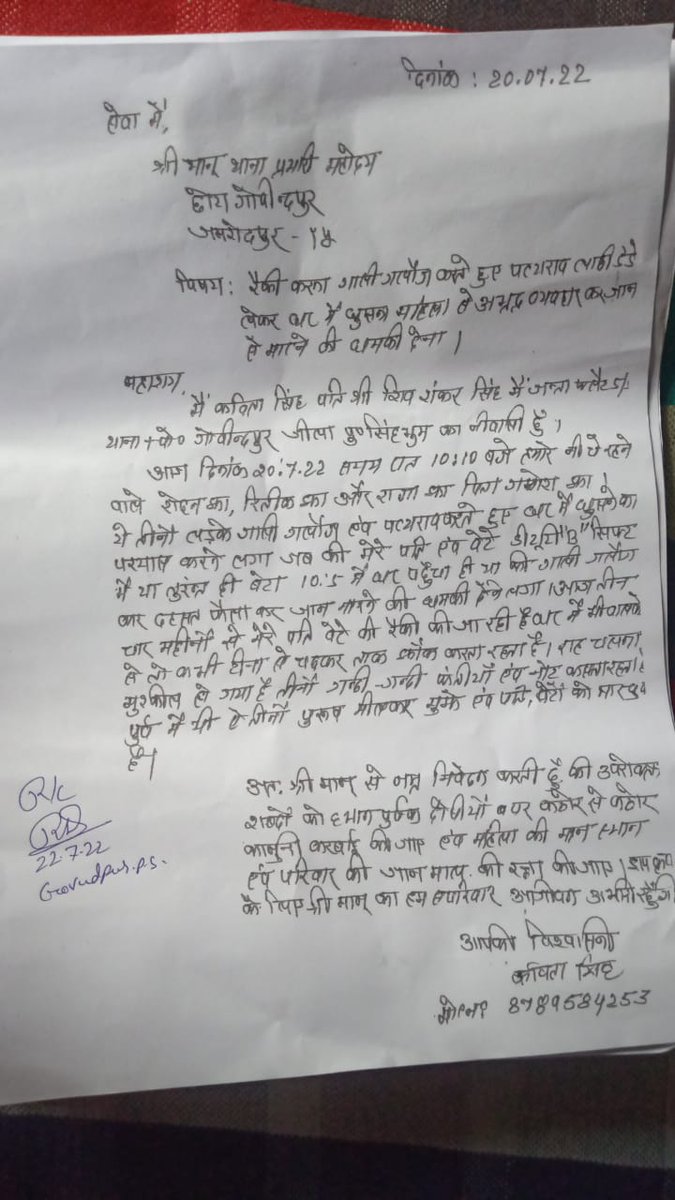 दिनांक : 20.07.22
सेवा में,
श्री मान् थाना प्रभारी महोदय
छोटा गोविन्दपुर
जमशेदपुर - 15
विषय : रैकी करना गाली गलौज करते हुए पत्थराव लाठी डंडे
लेकर घर में घुसना महिला से अभद्र व्यवहार कर जान
से मारने की धमकी देना।
महाशय,
मैं कविता सिंह पति श्री शिव शंकर सिंह मैं जनता फ्लैट
थाना + पो० गोविन्दपुर जीला पु० सिंहभुम का नीवासी हूँ।
आज दिनांक 20.7.22 समय रात 10:10 बजे हमारे नीचे रहने
वाले रोहन झा, रितीक झा और राजा झा पिता गणेश झा।
ये तीनों लड़के गाली गलौज एवं पत्थराव करते हुए घर में घुसने का
परयास करने लगा जब की मेरे पती एवं बेटे डीयूटी "B" सिफ्ट
में था तुरंत ही बेटा 10:5 में घर पहुँचा ही था की गाली गलौज
कर दहसत फैला कर जान मारने की धमकी देने लगा। आज तीन
चार महीनों से मेरे पति बेटे की रैकी की जा रही है घर में भी
से तो कभी सीना से चढ़कर ताक झाँक करता रहता है। राह चलना
मुश्कील हो गया है तीनों गन्दी-गन्दी एवं
पूर्व में भी ऐ तीनों पुरूष मीलकर मुझे एवं पती, बेटों को मार चुके
हैं।
अतः श्री मान् से नम्र निवेदन करती हूँ की उपरोक्त
शब्दों को ध्यान पुर्वक दोषीयों पर कठोर से कठोर
कानुनी करवाई की जाए एवं महिला की मान सम्मान
एवं परिवार की जान माल की रक्षा की जाए। इस कृपा
के लिए श्री मान् का हम सपरिवार आजीवन आभारी रहूँगी
आपकी विश्वासिनी
कविता सिंह
मो०न० 8789584253
R/c
22.7.22
Govindpur P.S.